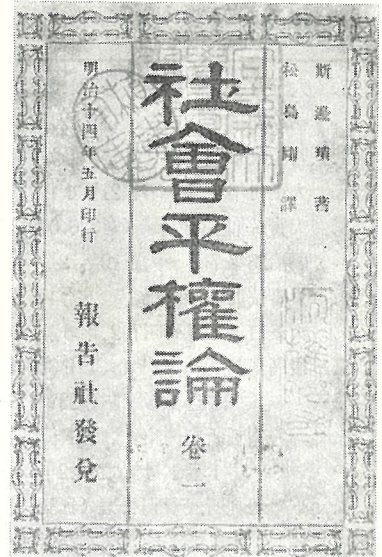 斯邊瑣著
松島剛譯
社會平權論
卷一
明治十四年五月印行
報告社發兌